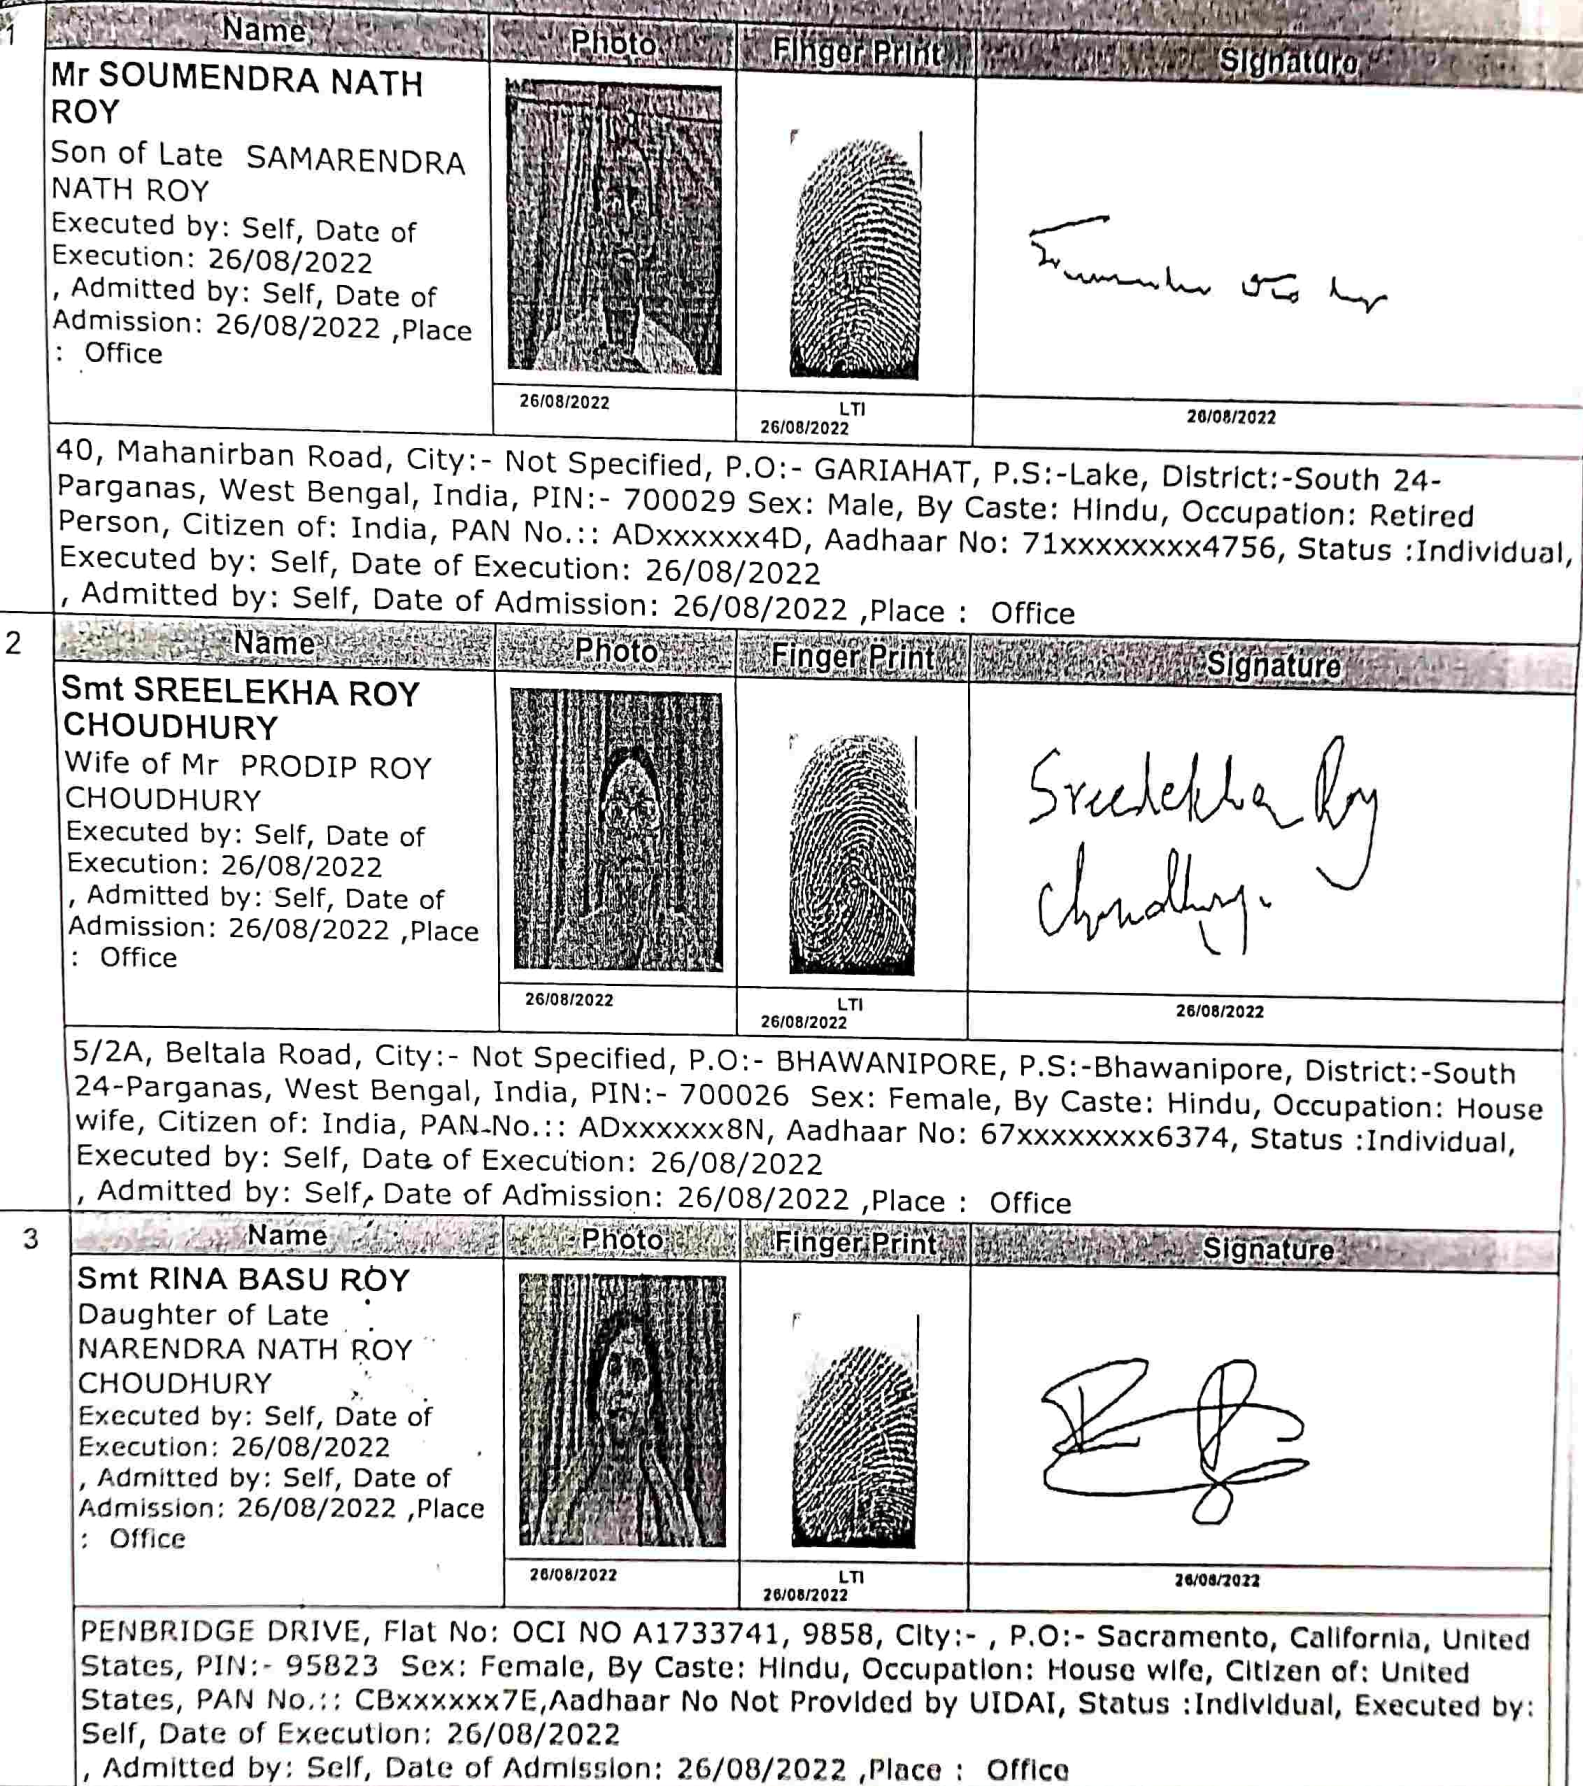 1
Name Photo Finger Print Signature
Mr SOUMENDRA NATH
ROY
Son of Late SAMARENDRA
NATH ROY
Executed by: Self, Date of
Execution: 26/08/2022
, Admitted by: Self, Date of
Admission: 26/08/2022 ,Place
: Office
26/08/2022 LTI 26/08/2022
26/08/2022
40, Mahanirban Road, City:- Not Specified, P.O:- GARIAHAT, P.S:-Lake, District:-South 24-
Parganas, West Bengal, India, PIN:- 700029 Sex: Male, By Caste: Hindu, Occupation: Retired
Person, Citizen of: India, PAN No.:: ADxxxxxx4D, Aadhaar No: 71xxxxxxxx4756, Status :Individual,
Executed by: Self, Date of Execution: 26/08/2022
, Admitted by: Self, Date of Admission: 26/08/2022 ,Place : Office
2
Name Photo Finger Print Signature
Smt SREELEKHA ROY
CHOUDHURY
Wife of Mr PRODIP ROY
CHOUDHURY
Executed by: Self, Date of
Execution: 26/08/2022
, Admitted by: Self, Date of
Admission: 26/08/2022 ,Place
: Office
Sreelekha Roy
Choudhury.
26/08/2022 LTI 26/08/2022
26/08/2022
5/2A, Beltala Road, City:- Not Specified, P.O:- BHAWANIPORE, P.S:-Bhawanipore, District:-South
24-Parganas, West Bengal, India, PIN:- 700026 Sex: Female, By Caste: Hindu, Occupation: House
wife, Citizen of: India, PAN No.:: ADxxxxxx8N, Aadhaar No: 67xxxxxxxx6374, Status :Individual,
Executed by: Self, Date of Execution: 26/08/2022
, Admitted by: Self, Date of Admission: 26/08/2022 ,Place : Office
3
Name Photo Finger Print Signature
Smt RINA BASU ROY
Daughter of Late
NARENDRA NATH ROY
CHOUDHURY
Executed by: Self, Date of
Execution: 26/08/2022
, Admitted by: Self, Date of
Admission: 26/08/2022 ,Place
: Office
26/08/2022 LTI 26/08/2022
26/08/2022
PENBRIDGE DRIVE, Flat No: OCI NO A1733741, 9858, City:- , P.O:- Sacramento, California, United
States, PIN:- 95823 Sex: Female, By Caste: Hindu, Occupation: House wife, Citizen of: United
States, PAN No.:: CBxxxxxx7E,Aadhaar No Not Provided by UIDAI, Status :Individual, Executed by:
Self, Date of Execution: 26/08/2022
, Admitted by: Self, Date of Admission: 26/08/2022 ,Place : Office